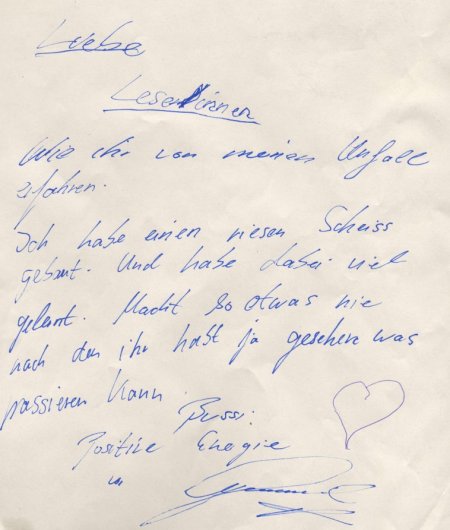 Liebe
Leser/innen
Wie ihr von meinen Unfall
erfahren.
Ich habe einen riesen Scheiss
gebaut. Und habe dabei viel
gelernt. Macht so etwas nie
nach den ihr habt ja gesehen was
passieren kann.
Bussi:
Positive Energie